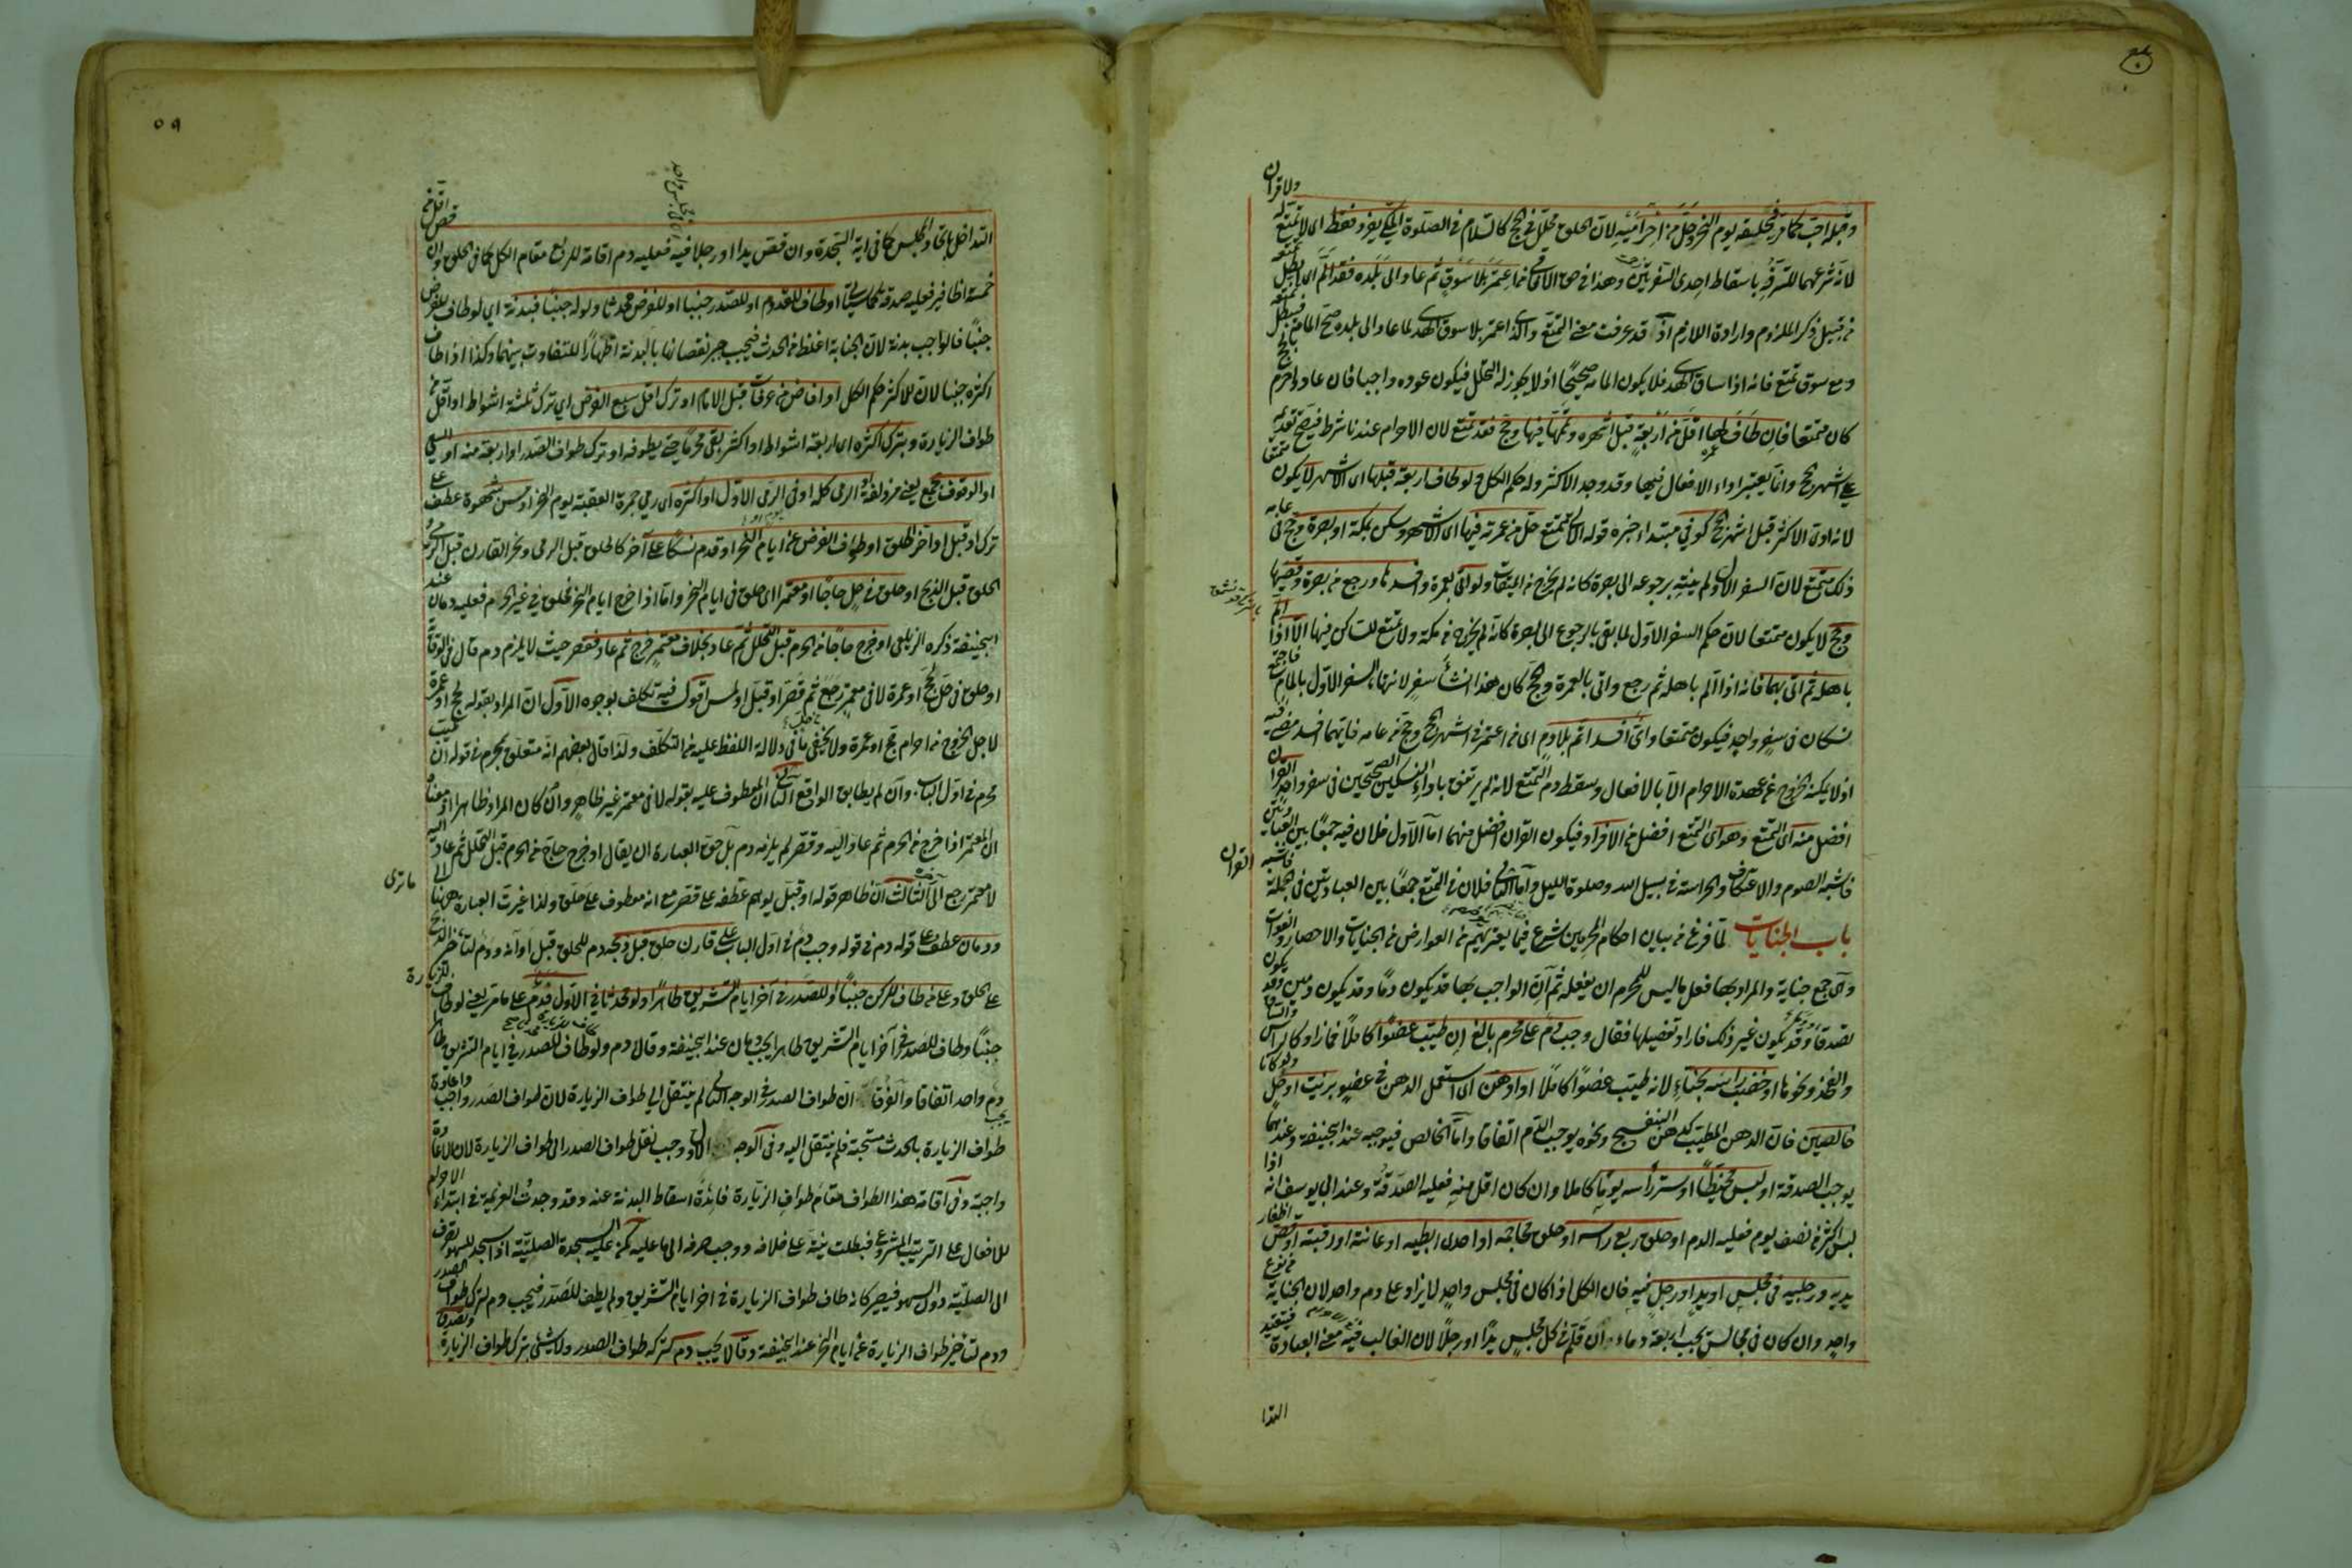 ولا قران
وقبله احب كما مر فبحلقه يوم النحر وحل من احراميه لان الحلق محلل فى الحج كالسلام فى الصلوة المكى يفرد فقط اى لا تمتع له
لانه شرعهما للترفه باسقاط احدى السفرتين وهذا فى حق الآفاقى من اعتمر بلا سوق ثم عاد الى بلده فقد الم اى بطل تمتعه
من قبيل ذكر الملزوم وارادة اللازم اذ قد عرفت معنى التمتع والذى اعتمر بلا سوق الهدى لما عاد الى بلده صح المامه فبطل تمتعه
ومع سوق تمتع فانه اذا ساق الهدى فلا يكون المامه صحيحا اذ لا يجوز له التحلل فيكون عوده واجبا فان عاد واحرم بالحج
كان متمتعا فان طاف لها اقل من اربعة قبل اشهره وتمها فيها وحج فقد تمتع لان الاحرام عندنا شرط فيصح تقديمه
على اشهر الحج وانما يعتبر اداء الافعال فيها وقد وجد الاكثر وله حكم الكل ولو طاف اربعة قبلها اى الاشهر لا يكون متمتعا
لانه ادى الاكثر قبل اشهر الحج كوفى مبتداء خبره قوله الآتى تمتع حل من عمرته فيها اى الاشهر وسكن بمكة او بصرة وحج من عامه
ذلك متمتع لان السفر الاول لم ينته برجوعه الى بصرة كانه لم يخرج من الميقات ولو اتى بعمرة وافسدها ورجع من بصرة وقضيها
وحج لا يكون متمتعا لان حكم السفر الاول لما بقى بالرجوع الى بصرة كانه لم يخرج من مكة ولا تمتع للساكن فيها الا اذا الم
باهله ثم اتى بهما فانه اذا الم باهله ثم رجع واتى بالعمرة والحج كان هذا انشأ سفر لانتهاء السفر الاول بالمام فاجتمع
نسكان فى سفر واحد فيكون متمتعا واى افسد اتم بلا دم اى من اعتمر فى اشهر الحج وحج من عامه فايهما افسد مضى فيه
اذ لا يمكنه الخروج عن عهدة الاحرام الا بالافعال وسقط دم التمتع لانه لم يرتفق باداء النسكين الصحيحين فى سفر واحد القران
افضل منه اى التمتع وهو اى التمتع افضل من الافراد فيكون القران افضل منهما اما الاول فلان فيه جمعا بين العبادتين
فاشبه الصوم والاعتكاف والحراسة فى سبيل الله وصلوة الليل واما الثانى فلان فى التمتع جمعا بين العبادتين فى الجملة فاشبه القران
باب الجنايات لما فرغ من بيان احكام المحرمين شرع فيما يعتريهم من العوارض من الجنايات والاحصار والفوات
وهى جمع جناية والمراد بها فعل ما ليس للمحرم ان يفعله ثم ان الواجب بها قد يكون دما وقد يكون دمين وقد يكون
تصدقا وقد يكون غير ذلك فاراد تفصيلها فقال وجب دم على محرم بالغ ان طيب عضوا كاملا فما زاد كالراس والساق
والفخذ ونحوها او خضب راسه بحناء لانه طيب عضوا كاملا او ادهن اى استعمل الدهن فى عضو بزيت او حل ولو كانا
خالصين فان الدهن المطيب كدهن البنفسج ونحوه يوجب الدم اتفاقا واما الخالص فيوجبه عند ابيحنيفة وعندهما
يوجب الصدقة او لبس مخيطا او ستر راسه يوما كاملا وان كان اقل منه فعليه الصدقة وعند ابى يوسف انه اذا
لبس اكثر من نصف يوم فعليه الدم او حلق ربع راسه او حلق محاجمه او احدى ابطيه او عانته او رقبته او قص اظفار
يديه ورجليه فى مجلس او يد او رجل فيه فان الكل اذا كان فى مجلس واحد لا يزاد على دم واحد لان الجناية من نوع
واحد وان كان فى مجالس يجب اربعة دماء ان قلم فى كل مجلس يدا او رجلا لان الغالب فيه معنى العبادة فيتقيد
التدا
٥٩
التداخل باتحاد المجلس كما فى اية السجدة وان قص يدا او رجلا فيه فعليه دم اقامة للربع مقام الكل كما فى الحلق وان قص اقل من
خمسة اظافير فعليه صدقة كما سياتى او طاف للقدوم او للصدر جنبا او للفرض محدثا ولو له جنبا فبدنة اى لو طاف للفرض
جنبا فالواجب بدنة لان الجنابة اغلظ من الحدث فيجب جبر نقصانها بالبدنة اظهارا للتفاوت بينهما وكذا اذا طاف
اكثره جنبا لان للاكثر حكم الكل او افاض من عرفات قبل الامام او ترك اقل سبع الفرض اى ترك ثلثة اشواط او اقل من
طواف الزيارة وبترك اكثره اى اربعة اشواط او اكثر بقى محرما حتى يطوفه او ترك طواف الصدر او اربعة منه او السعى
او الوقوف بجمع يعنى مزدلفة او الرمى كله او فى الرمى الاول او اكثره اى رمى جمرة العقبة يوم النحر او مس بشهوة عطف على
ترك او قبل او اخر الحلق او طواف الفرض عن ايام النحر او قدم نسكا على آخر كالحلق قبل الرمى ونحر القارن قبل الرمى او
الحلق قبل الذبح او حلق فى حل حاجا او معتمرا اى حلق فى ايام النحر واما اذا خرج ايام النحر فحلق فى غير الحرم فعليه دمان عند
ابيحنيفة ذكره الزيلعى او خرج حاجا من الحرم قبل التحلل ثم عاد بخلاف معتمر خرج ثم عاد فقصر حيث لا يلزم دم قال فى الوقاية
او حلق فى حل بحج او عمرة لا فى معتمر رجع ثم قصر او قبل او لمس اقول فيه تكلف بوجوه الاول ان المراد بقوله لحج او عمرة
لاجل الخروج من احرام حج او عمرة ولا يخفى ما فى دلالة اللفظ عليه من التكلف ولذا قال بعضهم انه متعلق بمحرم فى قوله ان طيب
محرم فى اول الباب وان لم يطابق الواقع الثانى ان المعطوف عليه بقوله لا فى معتمر غير ظاهر وان كان المراد ظاهرا اذ معناه
ان المعتمر اذا خرج من الحرم ثم عاد اليه وقصر لم يلزمه دم بل حق العبارة ان يقال او خرج حاج من الحرم قبل التحلل ثم عاد اليه
لا معتمر رجع الثالث ان ظاهر قوله او قبل يوهم عطفه على قصر مع انه معطوف على حلق ولذا غيرت العبارة ههنا الى ما ترى
ودمان عطف على قوله دم فى قوله وجب دم فى اول الباب على قارن حلق قبل ذبحه دم للحلق قبل اوانه ودم لتاخير الذبح
عن الحلق وعلى من طاف للركن جنبا وللصدر فى آخر ايام التشريق طاهرا ولو محدثا فى الاول فدم على ما مر يعنى لو طاف للزيارة
جنبا وطاف للصدر فى آخر ايام التشريق طاهرا يجب دمان عند ابيحنيفة وقالا دم ولو طاف للصدر فى ايام التشريق طاهرا
دم واحد اتفاقا والفرق ان طواف الصدر فى الوجه الثانى لم ينتقل الى طواف الزيارة لان طواف الصدر واجب واعادة
طواف الزيارة بالحدث مستحبة فلم ينتقل اليه وفى الوجه الاول وجب نقل طواف الصدر الى طواف الزيارة لان الاعادة
واجبة وفى اقامة هذا الطواف مقام طواف الزيارة فائدة اسقاط البدنة عنه وقد وجدت العزيمة فى ابتداء الاحرام
للافعال على الترتيب المشروع فبطلت نيته على خلافه ووجب صرفه الى ما عليه كمن عليه السجدة الصلبية اذا سجد للسهو تصرف
الى الصلبية دون السهو فيصير كانه طاف طواف الزيارة فى اخر ايام التشريق ولم يطف للصدر فيجب دم لترك طواف الصدر
ودم لتاخير طواف الزيارة عن ايام النحر عند ابيحنيفة وقالا يجب دم لتركه طواف الصدر ولا شيئى بترك طواف الزيارة